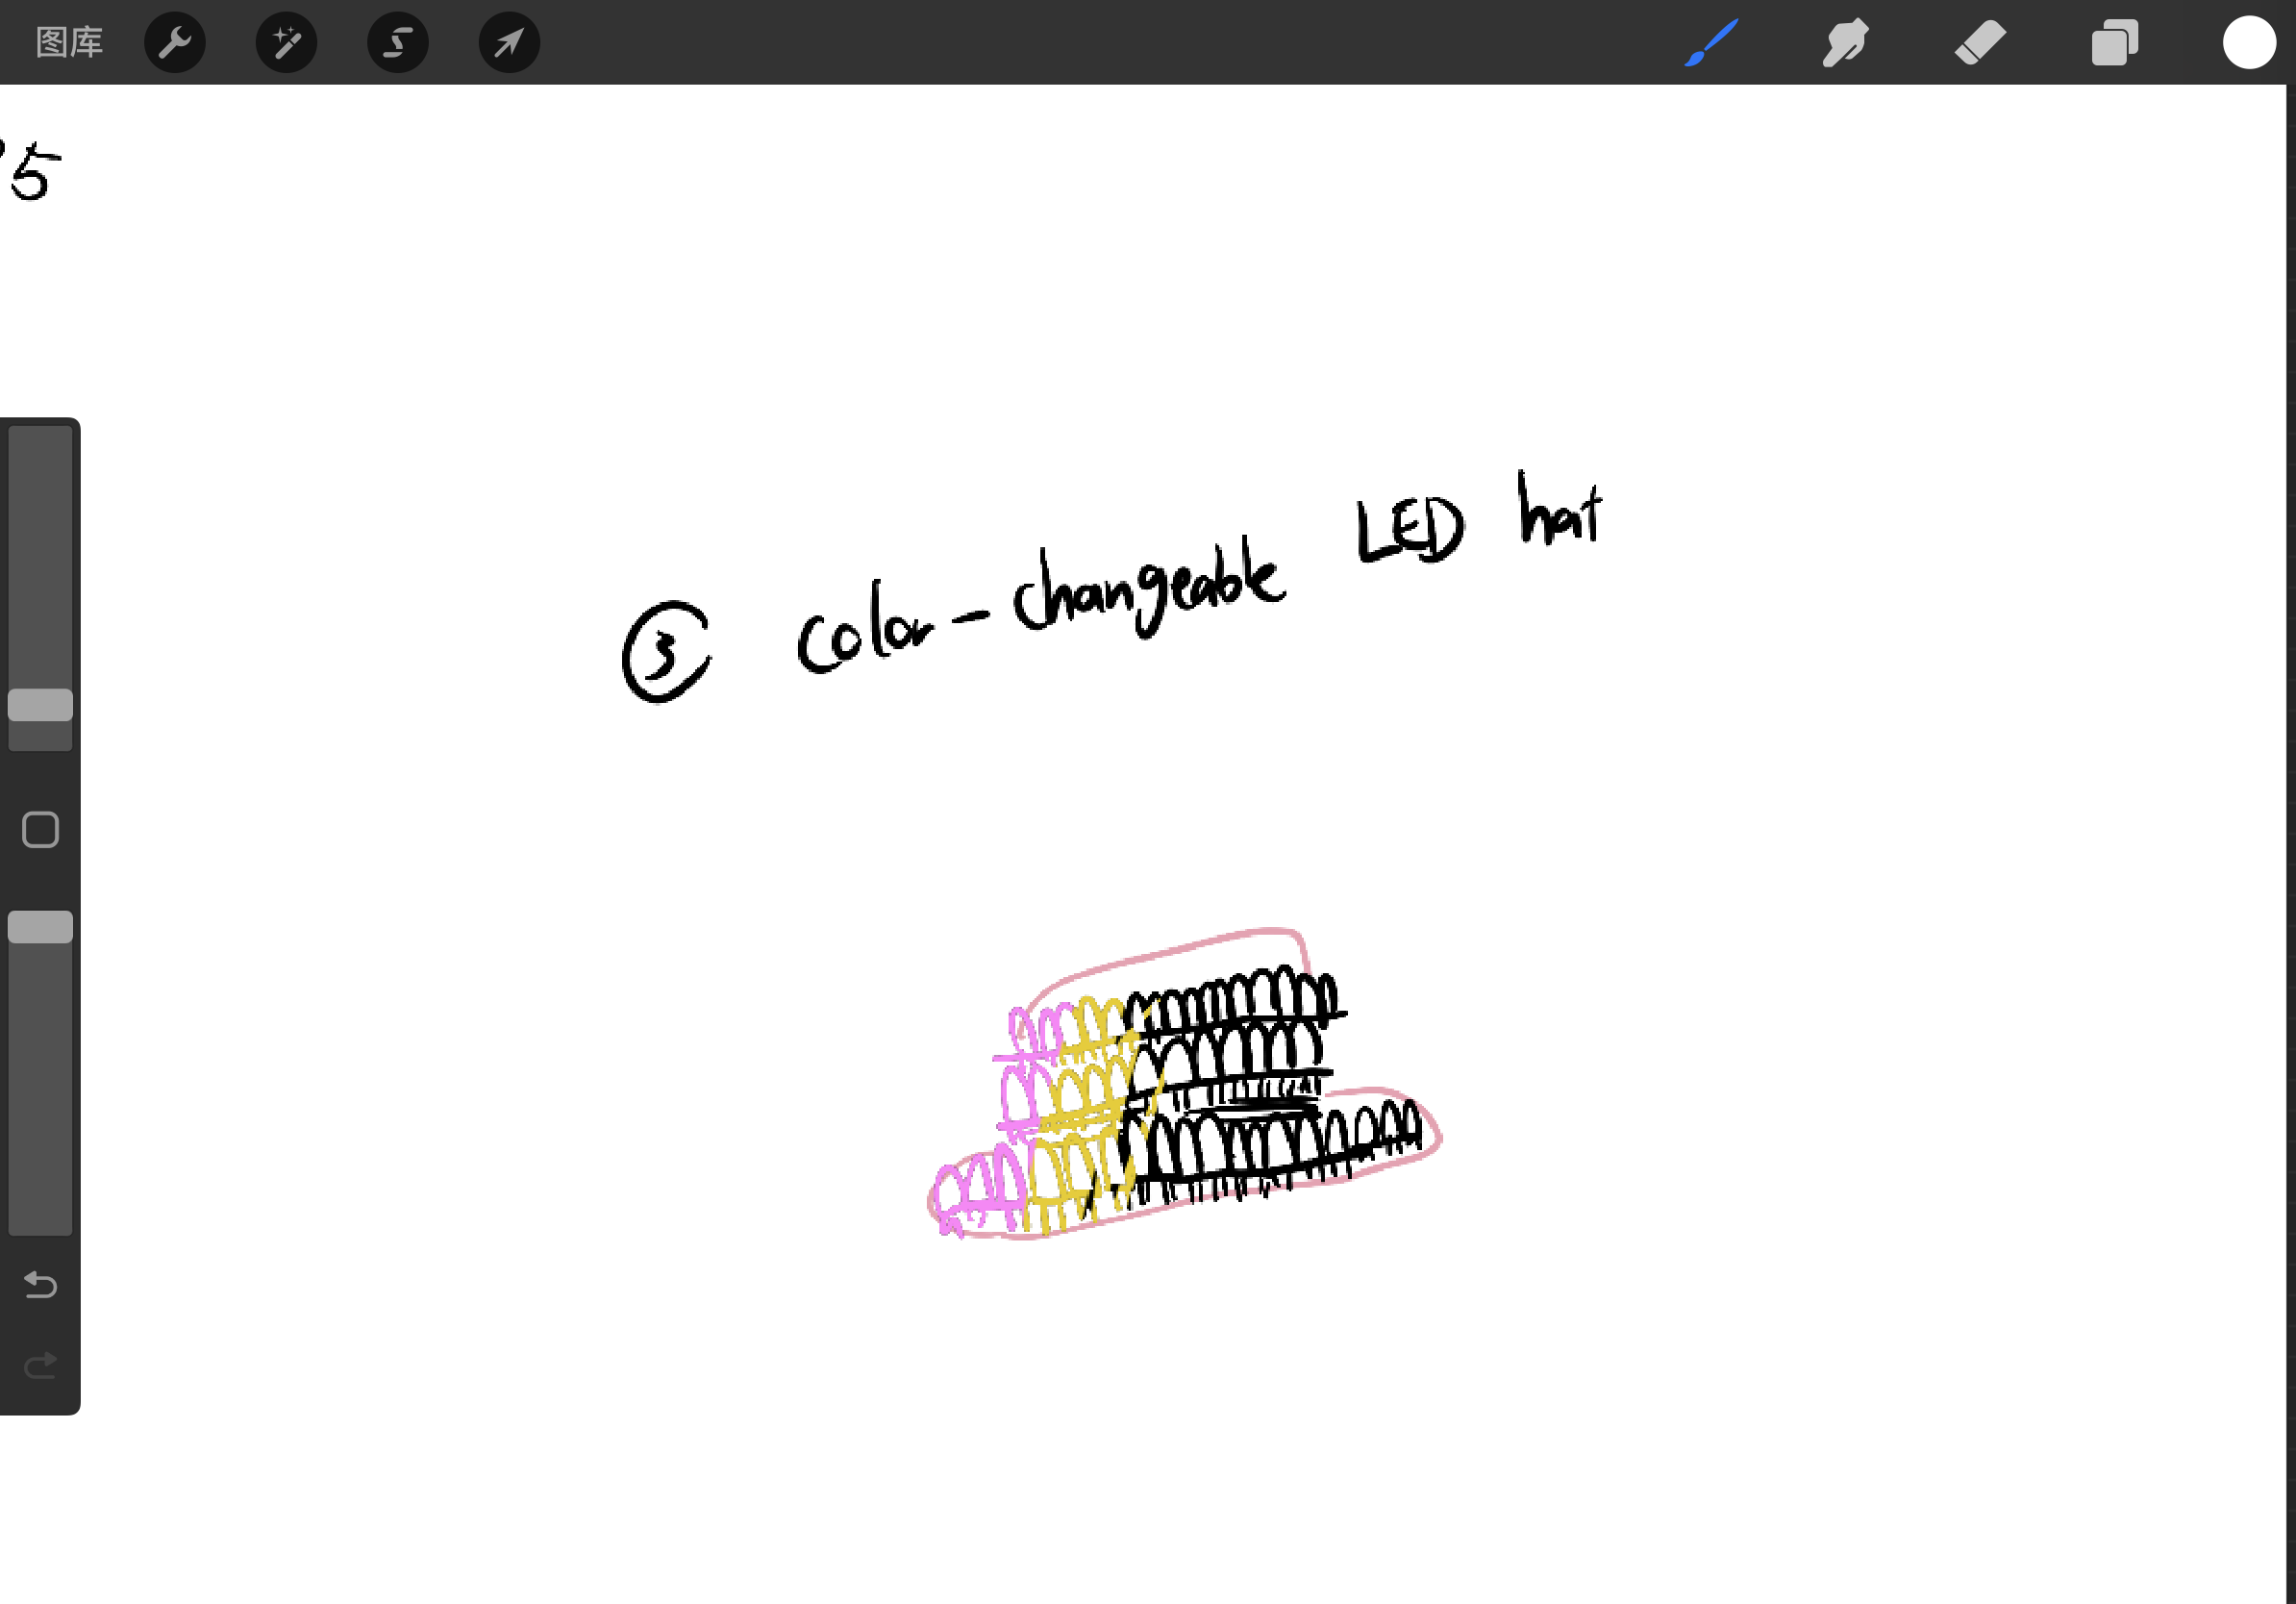 图库
5
③ color-changeable LED hat